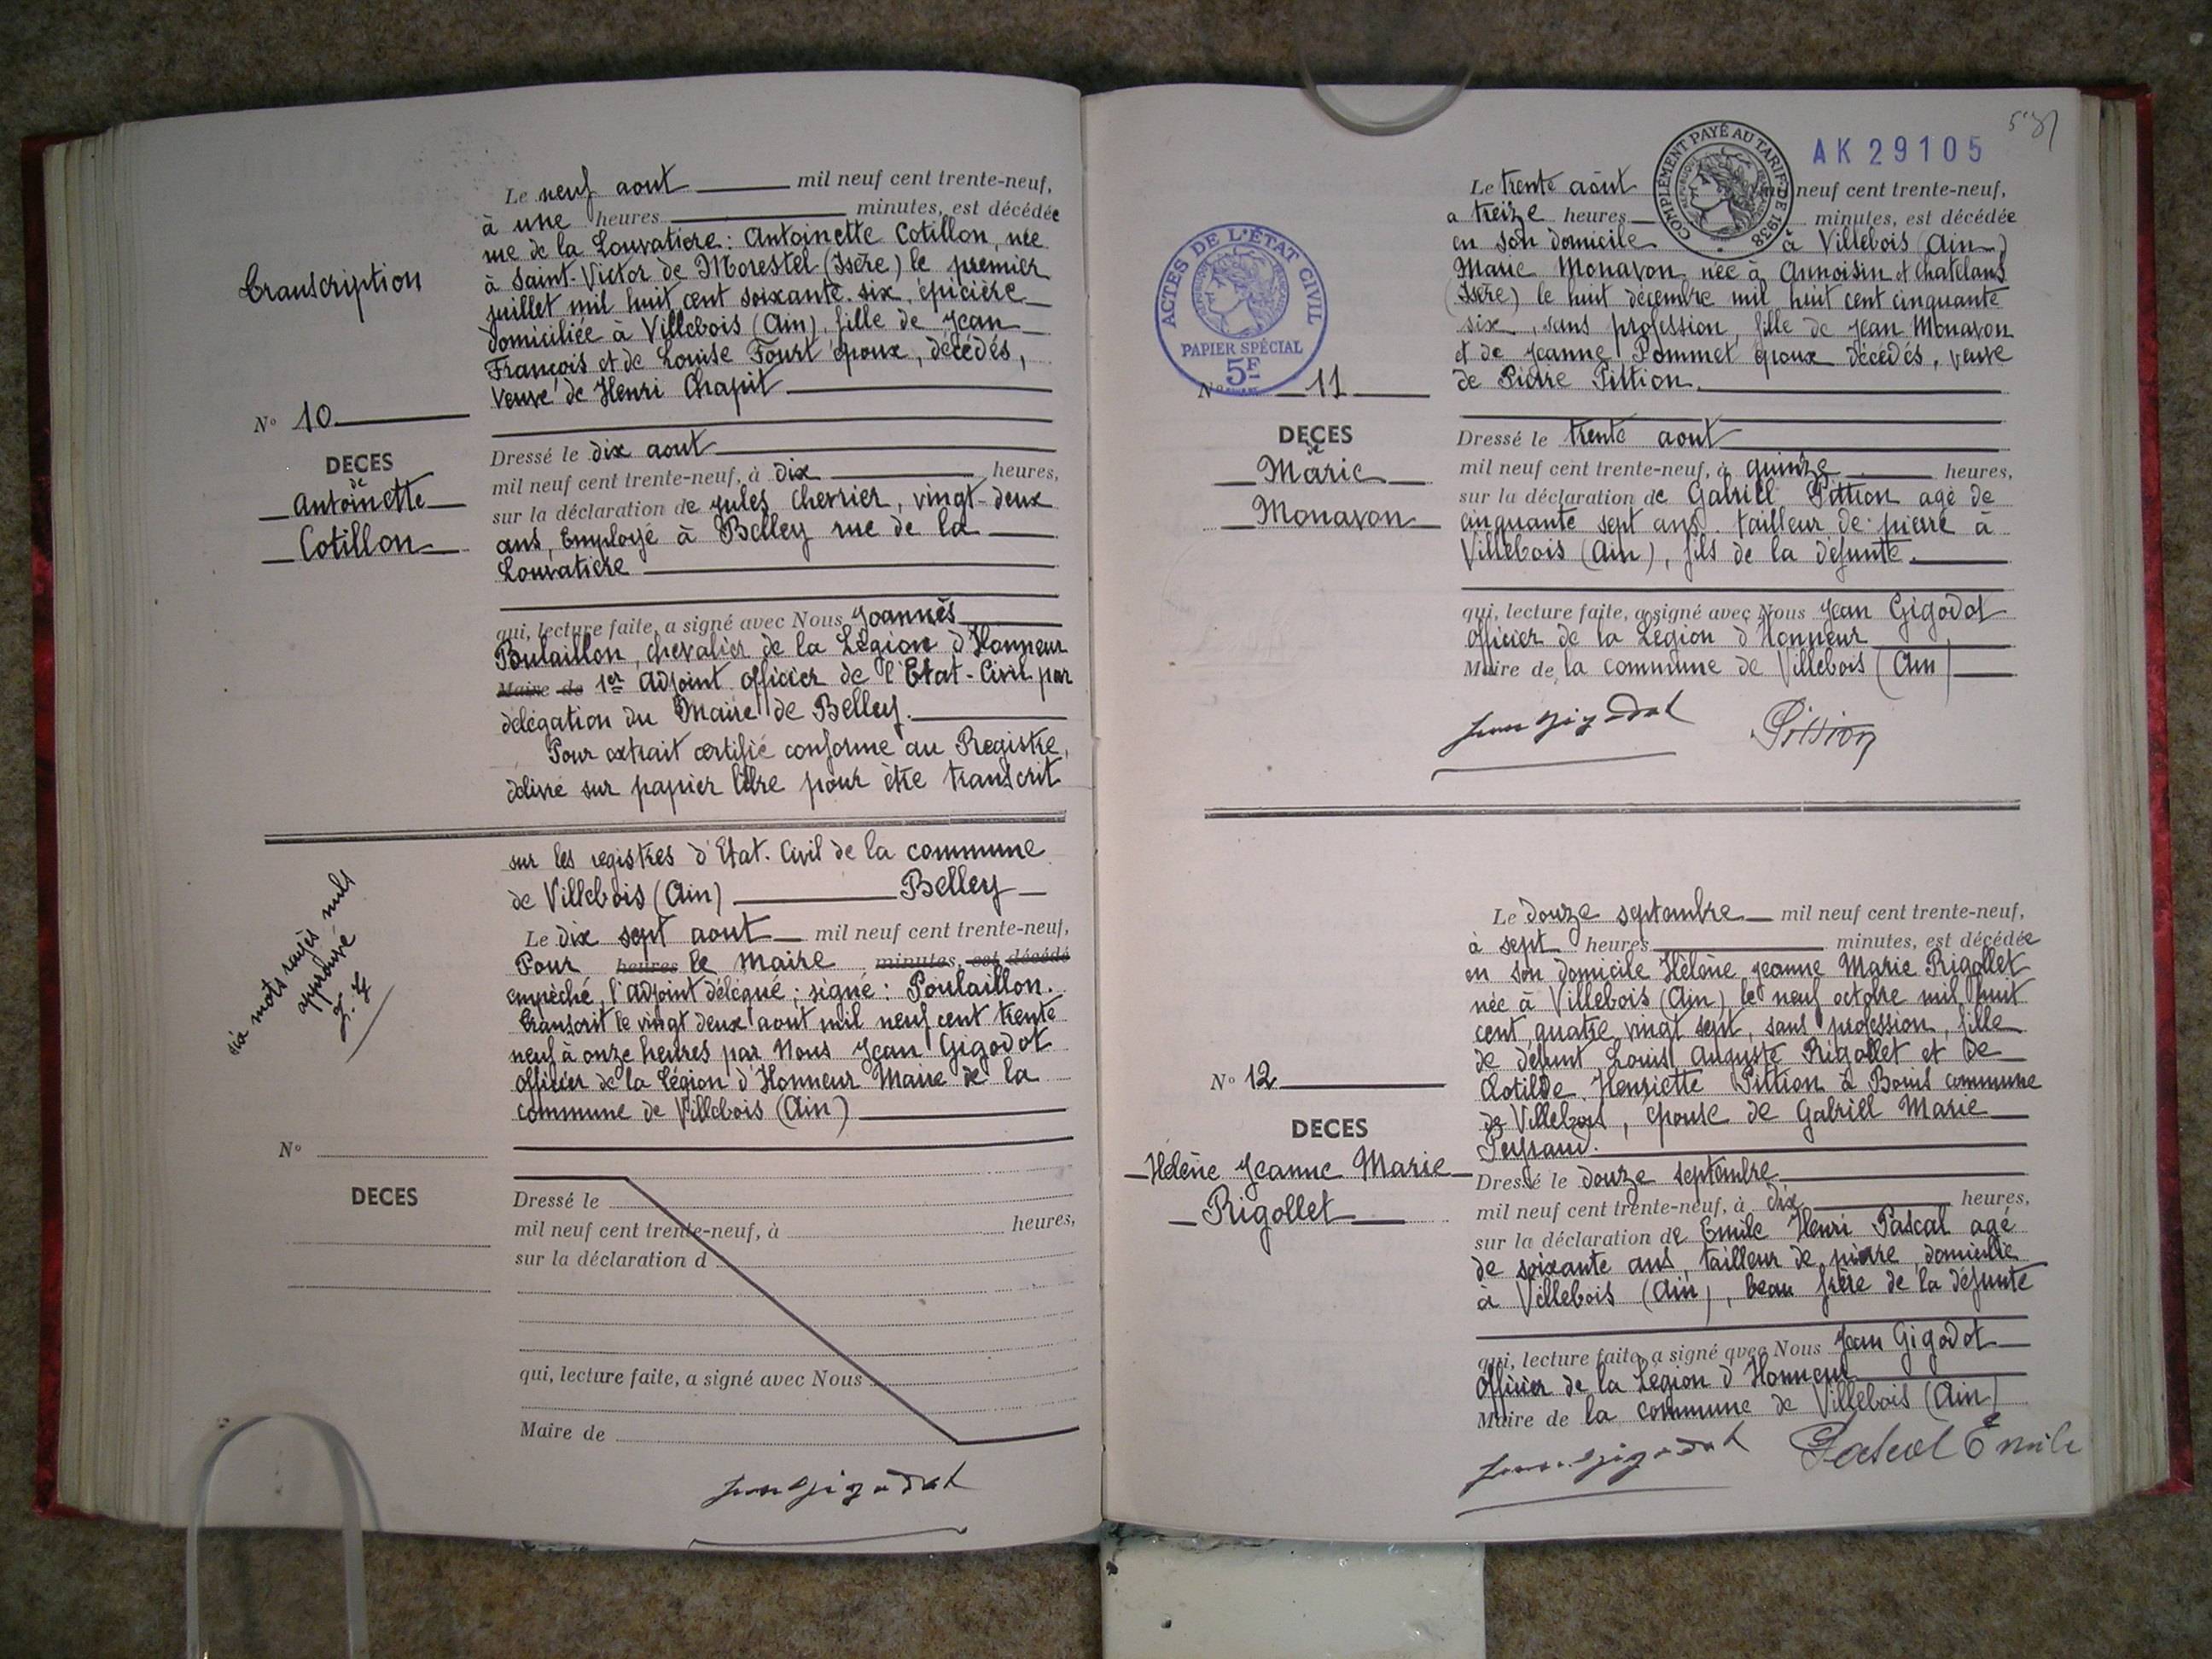 Transcription
N° 10
DECES
de
Antoinette
Cotillon
Le neuf aout mil neuf cent trente-neuf,
à une heures minutes, est décédée
rue de la Louvatière : Antoinette Cotillon, née
à Saint-Victor de Morestel (Isère) le premier
juillet mil huit cent soixante-six, épicière
domiciliée à Villebois (Ain), fille de Jean
François et de Louise Fourt époux, décédés,
Veuve de Henri Chapit
Dressé le dix aout
mil neuf cent trente-neuf, à dix heures,
sur la déclaration de Jules Chevrier, vingt-deux
ans, Employé à Belley rue de la
Louvatière
qui, lecture faite, a signé avec Nous Joannès
Poulaillon, chevalier de la Légion d'Honneur
Maire de 1er Adjoint officier de l'Etat-Civil par
délégation du Maire de Belley.
Pour extrait certifié conforme au Registre,
délivré sur papier libre pour être transcrit
sur les registres d'Etat-Civil de la commune
de Villebois (Ain) Belley
Le dix sept aout mil neuf cent trente-neuf,
Pour heures le Maire minutes, est décédé
empêché, l'adjoint délégué ; signé : Poulaillon.
Transcrit le vingt deux aout mil neuf cent trente
neuf à onze heures par Nous Jean Gigodot
officier de la Légion d'Honneur Maire de la
commune de Villebois (Ain)
six mots rayés nuls
approuvé
J. G
N°
DECES
Dressé le
mil neuf cent trente-neuf, à heures,
sur la déclaration d
qui, lecture faite, a signé avec Nous
Maire de
Jean Gigodot
581
AK 29105
COMPLÉMENT PAYÉ AU TARIF DE 1938
ACTES DE L'ÉTAT CIVIL
PAPIER SPÉCIAL
5F
N° 11
DECES
de
Marie
Monavon
Le trente août neuf cent trente-neuf,
a treize heures minutes, est décédée
en son domicile à Villebois (Ain)
Marie Monavon née à Annoisin et Chatelans
(Isère) le huit décembre mil huit cent cinquante
six, sans profession, fille de Jean Monavon
et de Jeanne Pommet époux décédés, veuve
de Pierre Pittion.
Dressé le trente aout
mil neuf cent trente-neuf, à quinze heures,
sur la déclaration de Gabriel Pittion agé de
cinquante sept ans tailleur de pierre à
Villebois (Ain), fils de la défunte.
qui, lecture faite, a signé avec Nous Jean Gigodot
officier de la Légion d'Honneur
Maire de la commune de Villebois (Ain)
Jean Gigodot Pittion
N° 12
DECES
Hélène Jeanne Marie
Rigollet
Le douze septembre mil neuf cent trente-neuf,
à sept heures minutes, est décédée
en son domicile Hélène Jeanne Marie Rigollet
née à Villebois (Ain) le neuf octobre mil huit
cent quatre vingt sept, sans profession, fille
de défunt Louis Auguste Rigollet et de
Clotilde Henriette Pittion à Bouis commune
de Villebois, épouse de Gabriel Marie
Peysaud.
Dressé le douze septembre
mil neuf cent trente-neuf, à dix heures,
sur la déclaration de Emile Henri Pascal agé
de soixante ans, tailleur de pierre, domicilié
à Villebois (Ain), beau frère de la défunte
qui, lecture faite, a signé avec Nous Jean Gigodot
Officier de la Légion d'Honneur
Maire de la commune de Villebois (Ain)
Jean Gigodot Pascal Emile